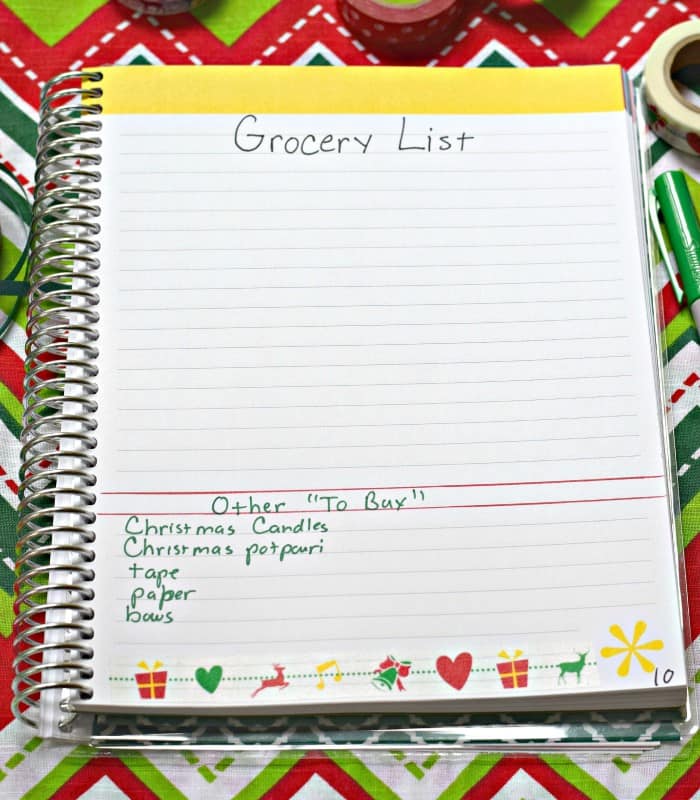 Grocery List
Other "To Buy"
Christmas Candles
Christmas potpouri
tape
paper
bows
10